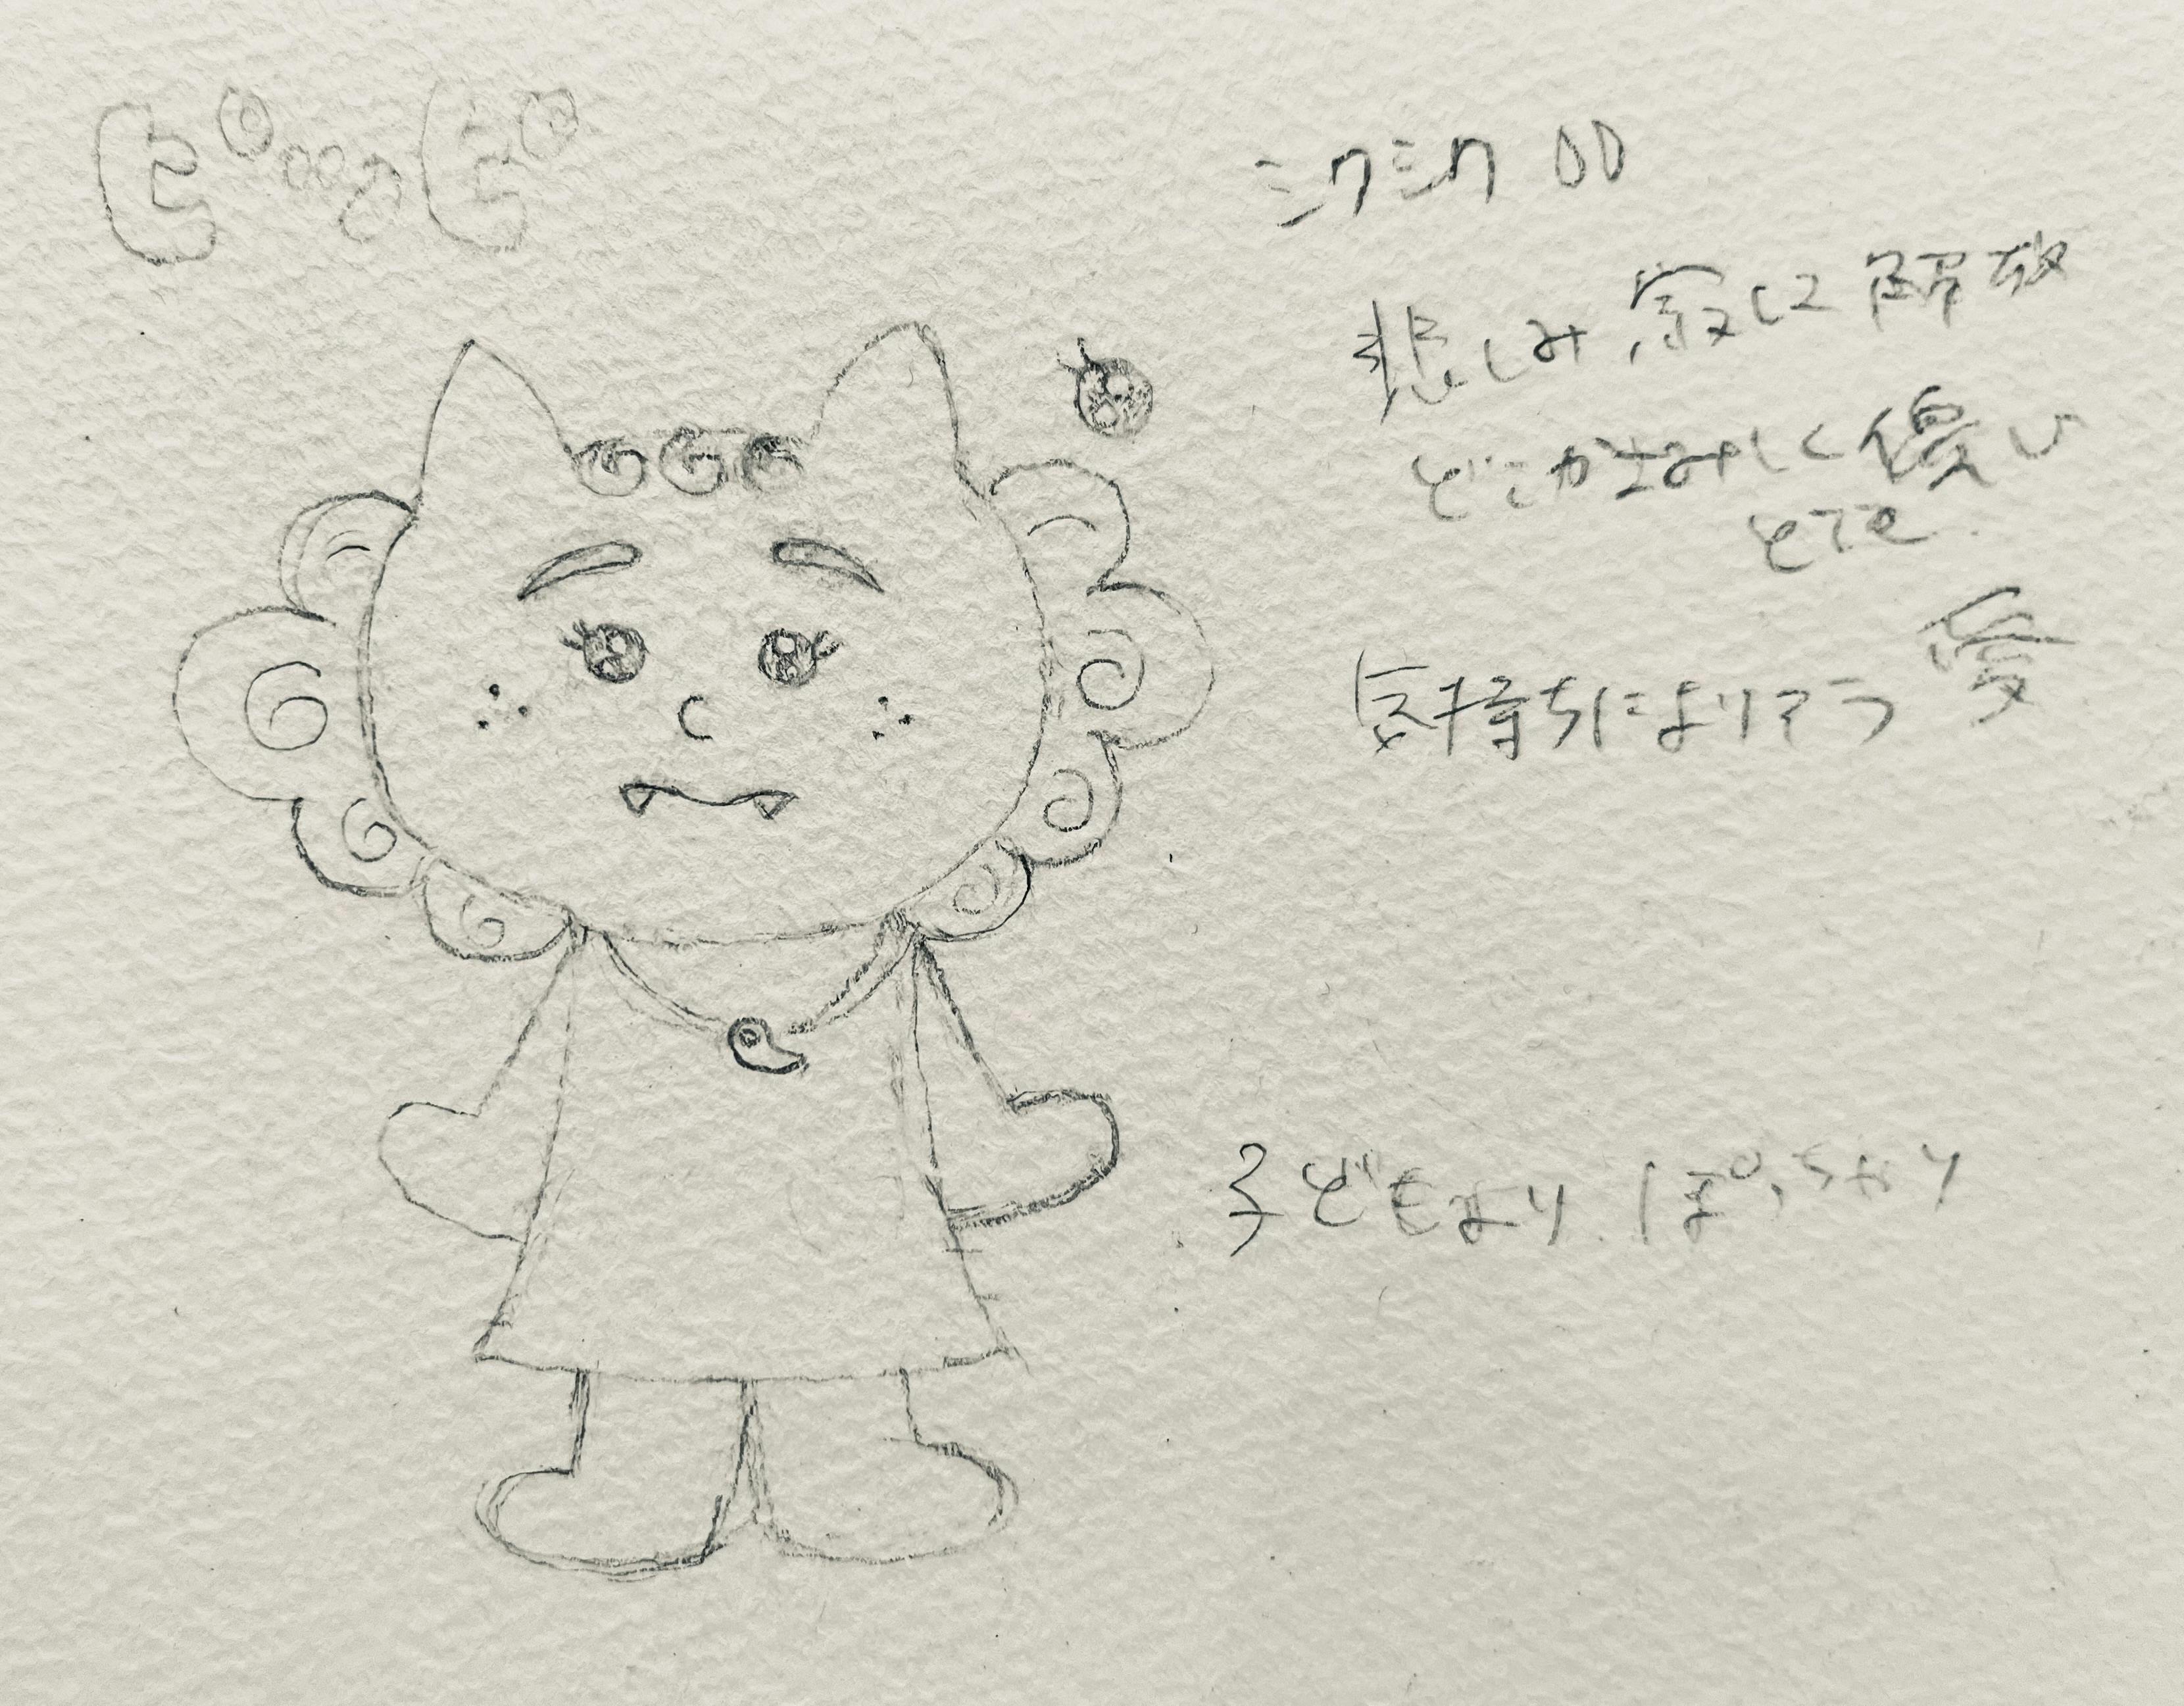 シクシク
悲しみ 涙に解放
どこかさみしく優しい
とても
気持ちによりそう 愛
子どもより ぽっちゃり